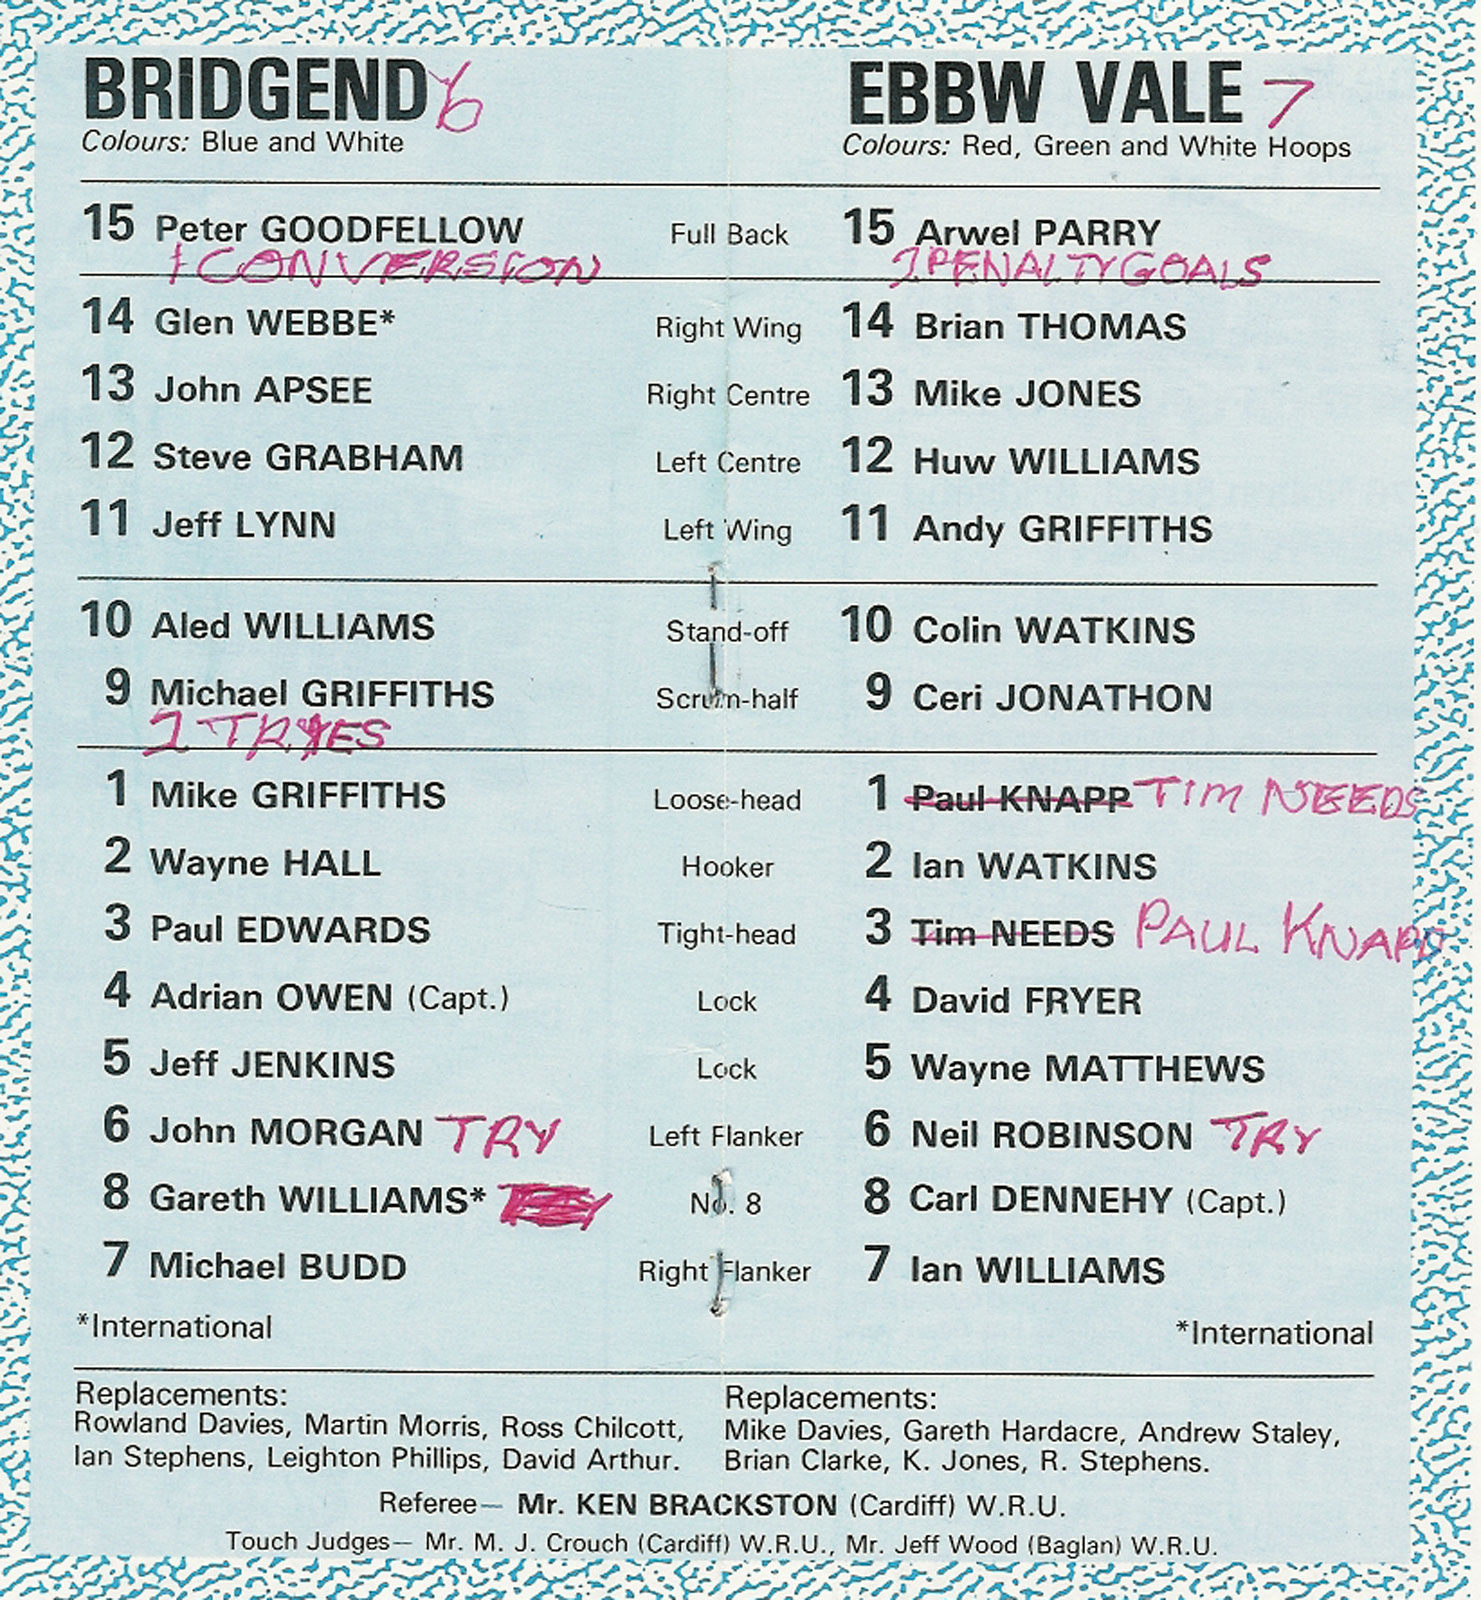 BRIDGEND 6 EBBW VALE 7
Colours: Blue and White Colours: Red, Green and White Hoops
15 Peter GOODFELLOW Full Back 15 Arwel PARRY
1 CONVERSION 2 PENALTY GOALS
14 Glen WEBBE* Right Wing 14 Brian THOMAS
13 John APSEE Right Centre 13 Mike JONES
12 Steve GRABHAM Left Centre 12 Huw WILLIAMS
11 Jeff LYNN Left Wing 11 Andy GRIFFITHS
10 Aled WILLIAMS Stand-off 10 Colin WATKINS
9 Michael GRIFFITHS Scrum-half 9 Ceri JONATHON
2 TRIES
1 Mike GRIFFITHS Loose-head 1 Paul KNAPP TIM NEEDS
2 Wayne HALL Hooker 2 Ian WATKINS
3 Paul EDWARDS Tight-head 3 Tim NEEDS PAUL KNAPP
4 Adrian OWEN (Capt.) Lock 4 David FRYER
5 Jeff JENKINS Lock 5 Wayne MATTHEWS
6 John MORGAN TRY Left Flanker 6 Neil ROBINSON TRY
8 Gareth WILLIAMS* No. 8 8 Carl DENNEHY (Capt.)
7 Michael BUDD Right Flanker 7 Ian WILLIAMS
*International *International
Replacements: Replacements:
Rowland Davies, Martin Morris, Ross Chilcott, Mike Davies, Gareth Hardacre, Andrew Staley,
Ian Stephens, Leighton Phillips, David Arthur. Brian Clarke, K. Jones, R. Stephens.
Referee— Mr. KEN BRACKSTON (Cardiff) W.R.U.
Touch Judges— Mr. M. J. Crouch (Cardiff) W.R.U., Mr. Jeff Wood (Baglan) W.R.U.